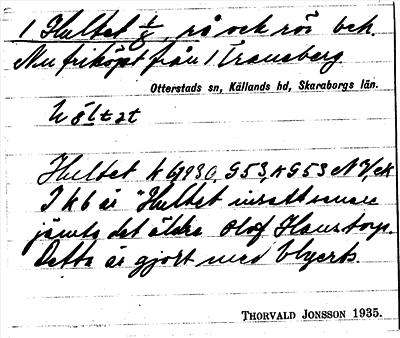 1 Hultet 1/8, rå och rör bek.
Nu friköpt från 1 Traneberg
Otterstads sn, Källands hd, Skaraborgs län.
Hultet G53, G53
I kb är "Hultet insatt senare
jämte det äldre Olof Hanstorp.
Detta är gjort med blyerts
THORVALD JONSSON 1935.